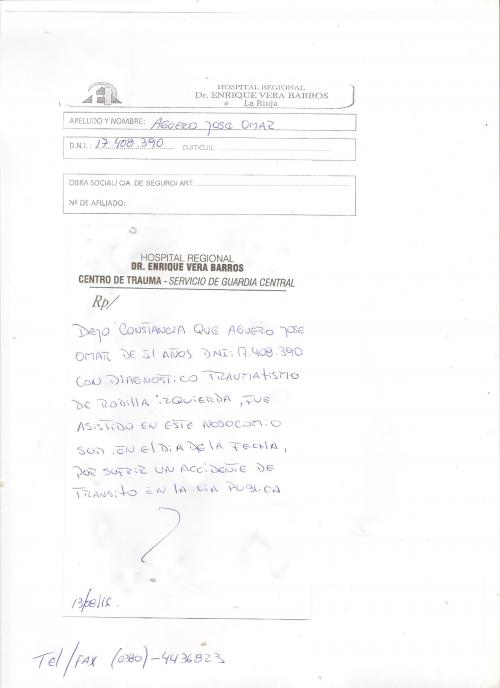 HOSPITAL REGIONAL
Dr. ENRIQUE VERA BARROS
La Rioja
APELLIDO Y NOMBRE: AGUERO JOSE OMAR
D.N.I.: 17.408.390 CUIT/CUIL:
OBRA SOCIAL/ CIA. DE SEGURO/ ART:
Nº DE AFILIADO:
HOSPITAL REGIONAL
DR. ENRIQUE VERA BARROS
CENTRO DE TRAUMA - SERVICIO DE GUARDIA CENTRAL
Rp/
DEJO CONSTANCIA QUE AGUERO JOSE
OMAR DE 51 AÑOS DNI: 17.408.390
CON DIAGNOSTICO TRAUMATISMO
DE RODILLA IZQUIERDA, FUE
ASISTIDO EN ESTE NOSOCOMIO
EN EL DIA DE LA FECHA,
POR SUFRIR UN ACCIDENTE DE
TRANSITO EN LA VIA PUBLICA
13/08/16.
Tel/FAX (0380)-4436823